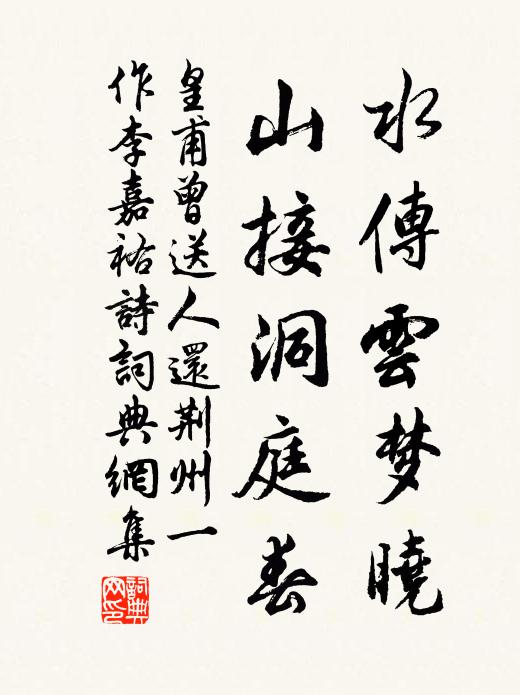 水傳雲梦曉
山接洞庭春
皇甫曾送人還荆州一
作李嘉祐詩詞典網集
詞典
网印